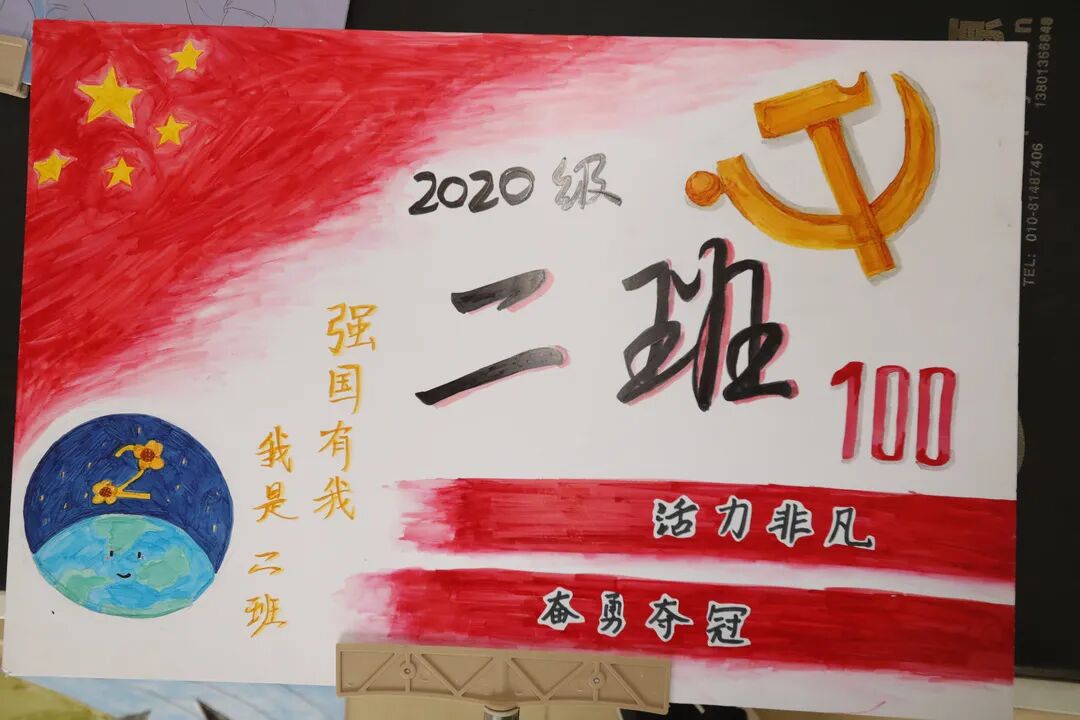 2020级
二班
100
强国有我
我是二班
2
活力非凡
奋勇夺冠
TEL: 010-81487406
13801366849